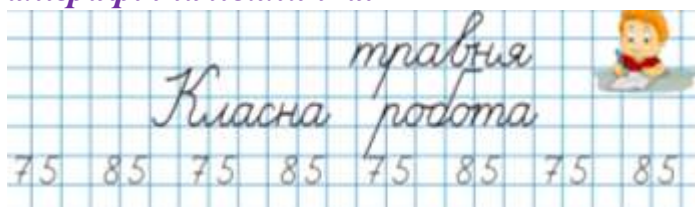 травня
Класна робота
75 85 75 85 75 85 75 85